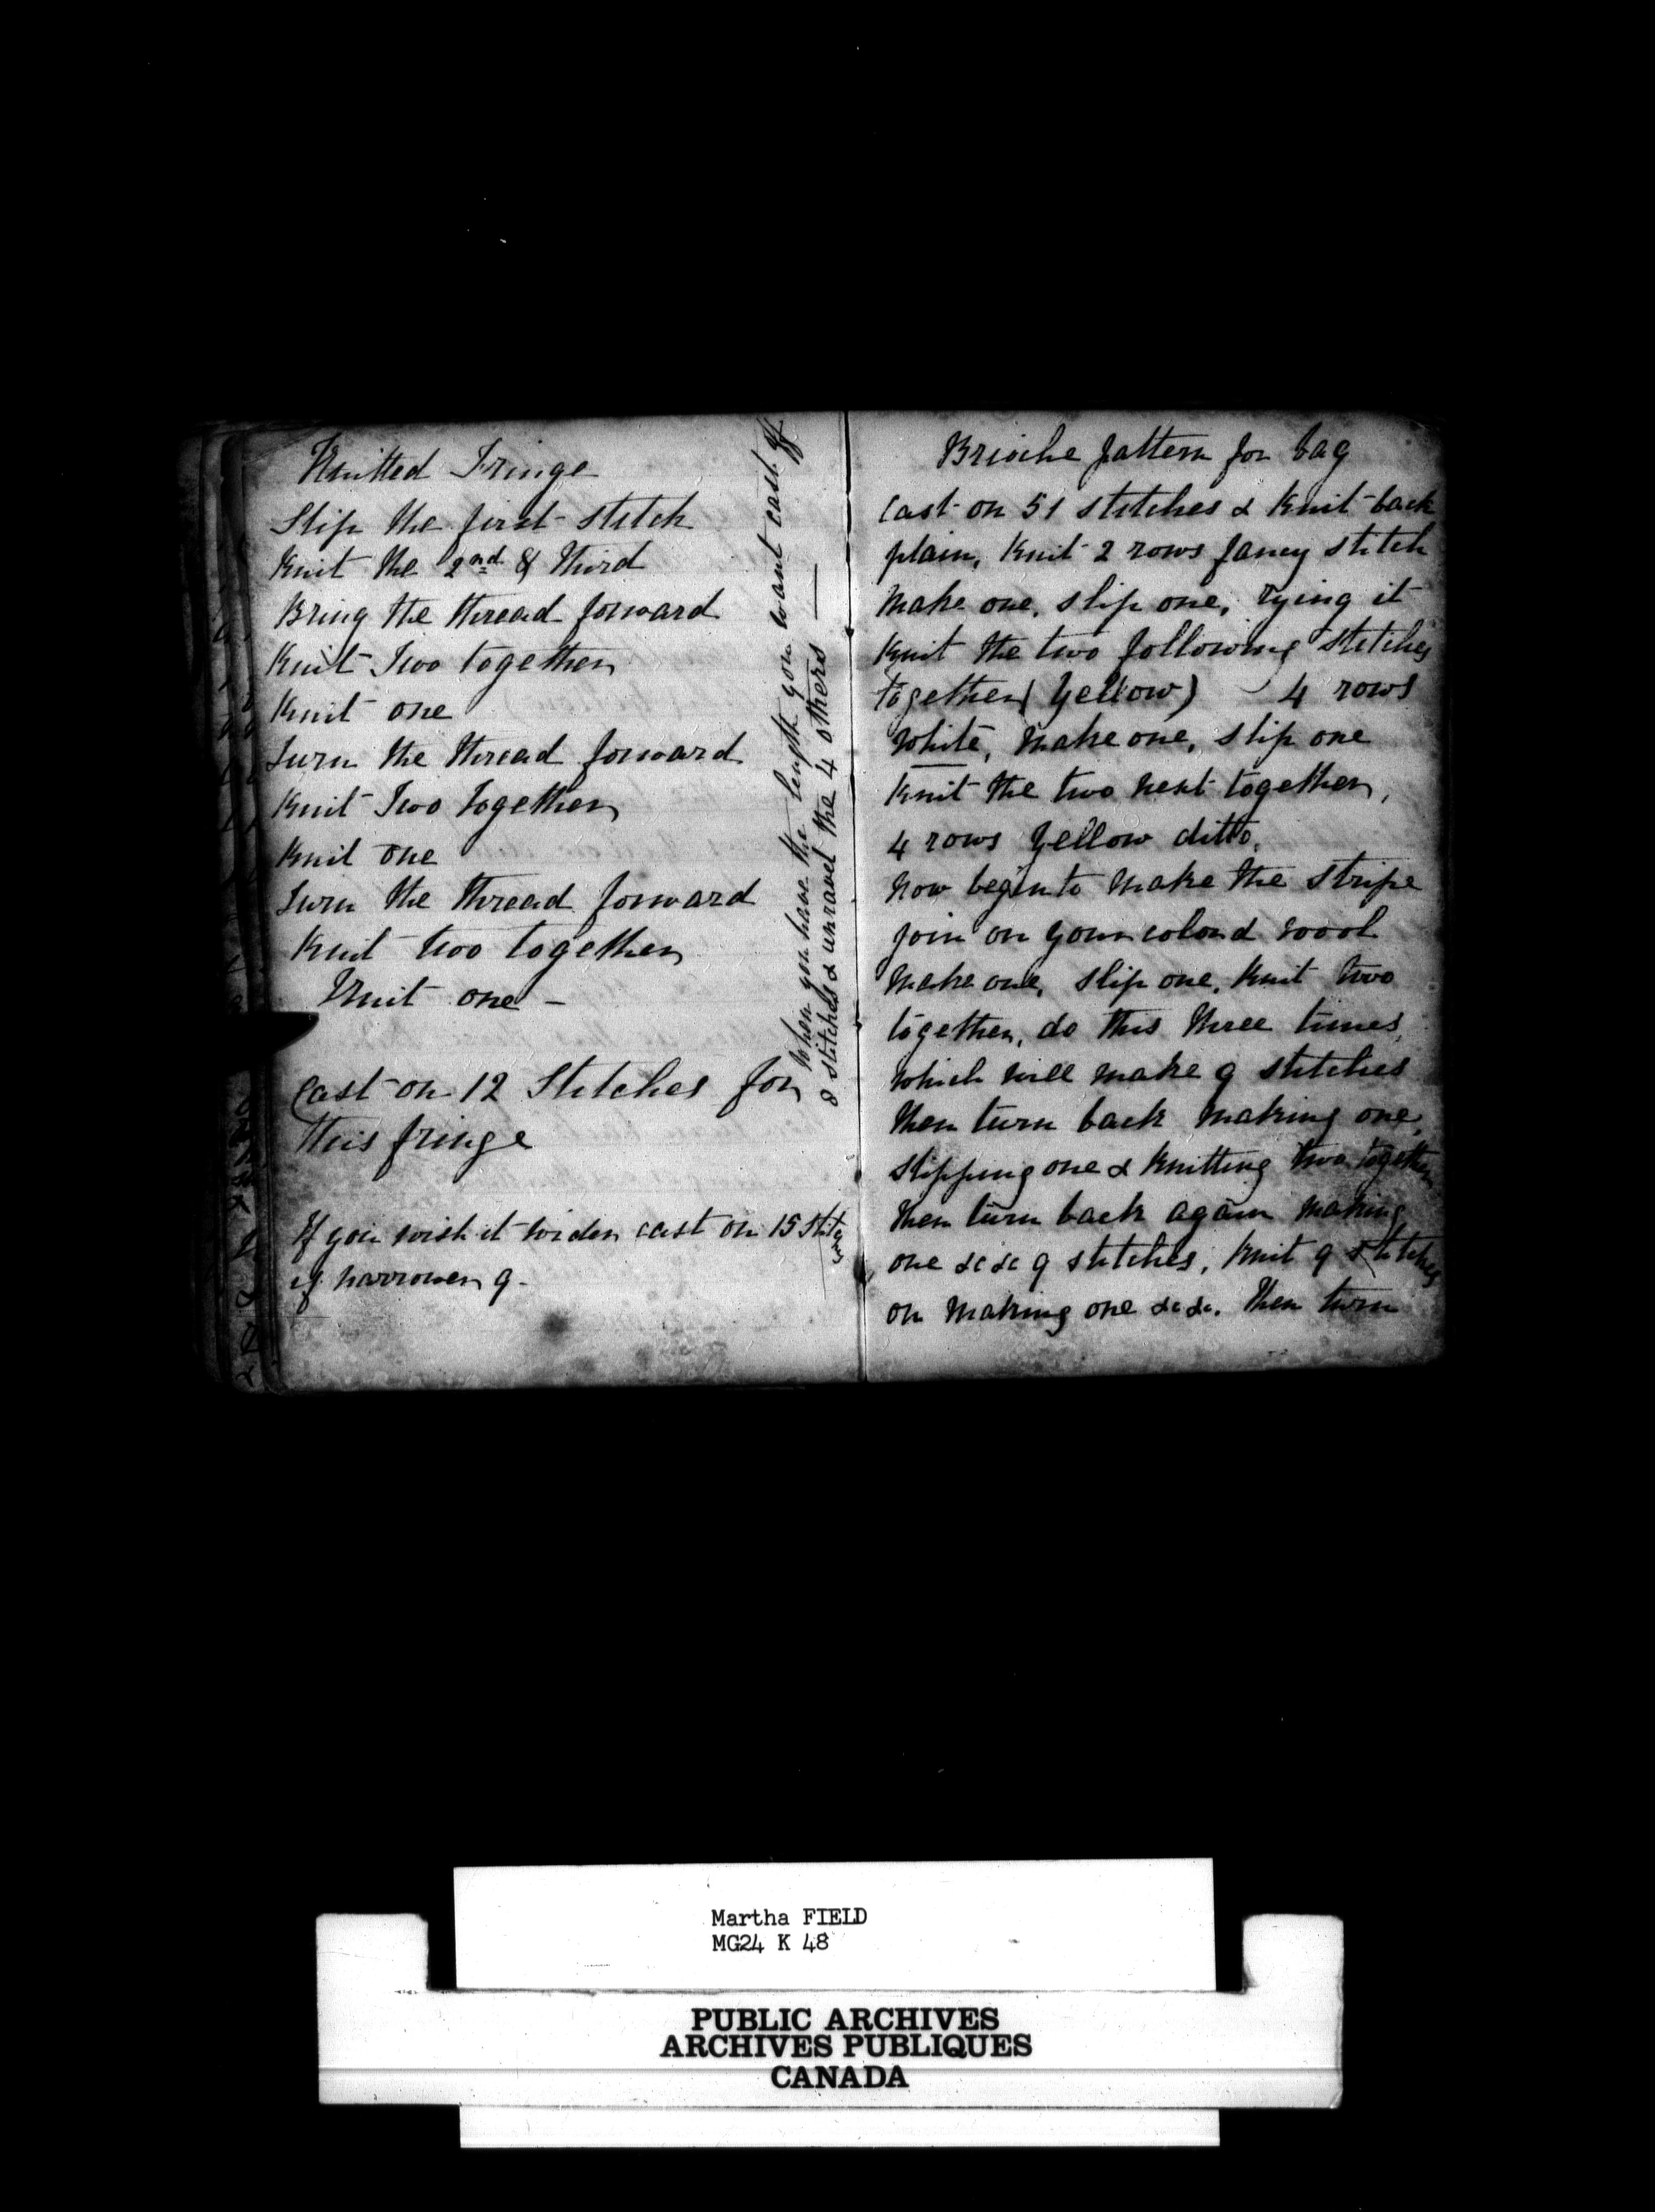 Knitted Fringe
Slip the first stitch
Knit the 2nd & third
Bring the thread forward
Knit Two together
Knit one
Turn the thread forward
Knit Two together
Knit one
Turn the thread forward
Knit two together
Knit one –
Cast on 12 Stitches for
this fringe
If you wish it wider cast on 15 stitches
if narrower 9 -
When you have the length you want cast off
8 stitches & unravel the 4 others —
Brioche pattern for bag
Cast on 51 stitches & Knit back
plain, Knit 2 rows fancy stitch
Make one, slip one, it
Knit the two following stitches
together (Yellow) 4 rows
White, Make one, slip one
Knit the two next together,
4 rows Yellow ditto,
now begin to make the stripe
join on your colord wool
make one, slip one, Knit two
together, do this three times
which will make 9 stitches
then turn back making one,
slipping one & Knitting two together
then turn back again making
one &c &c 9 stitches, Knit 9 stitches
on making one &c &c. then turn
Martha FIELD
MG24 K 48
PUBLIC ARCHIVES
ARCHIVES PUBLIQUES
CANADA